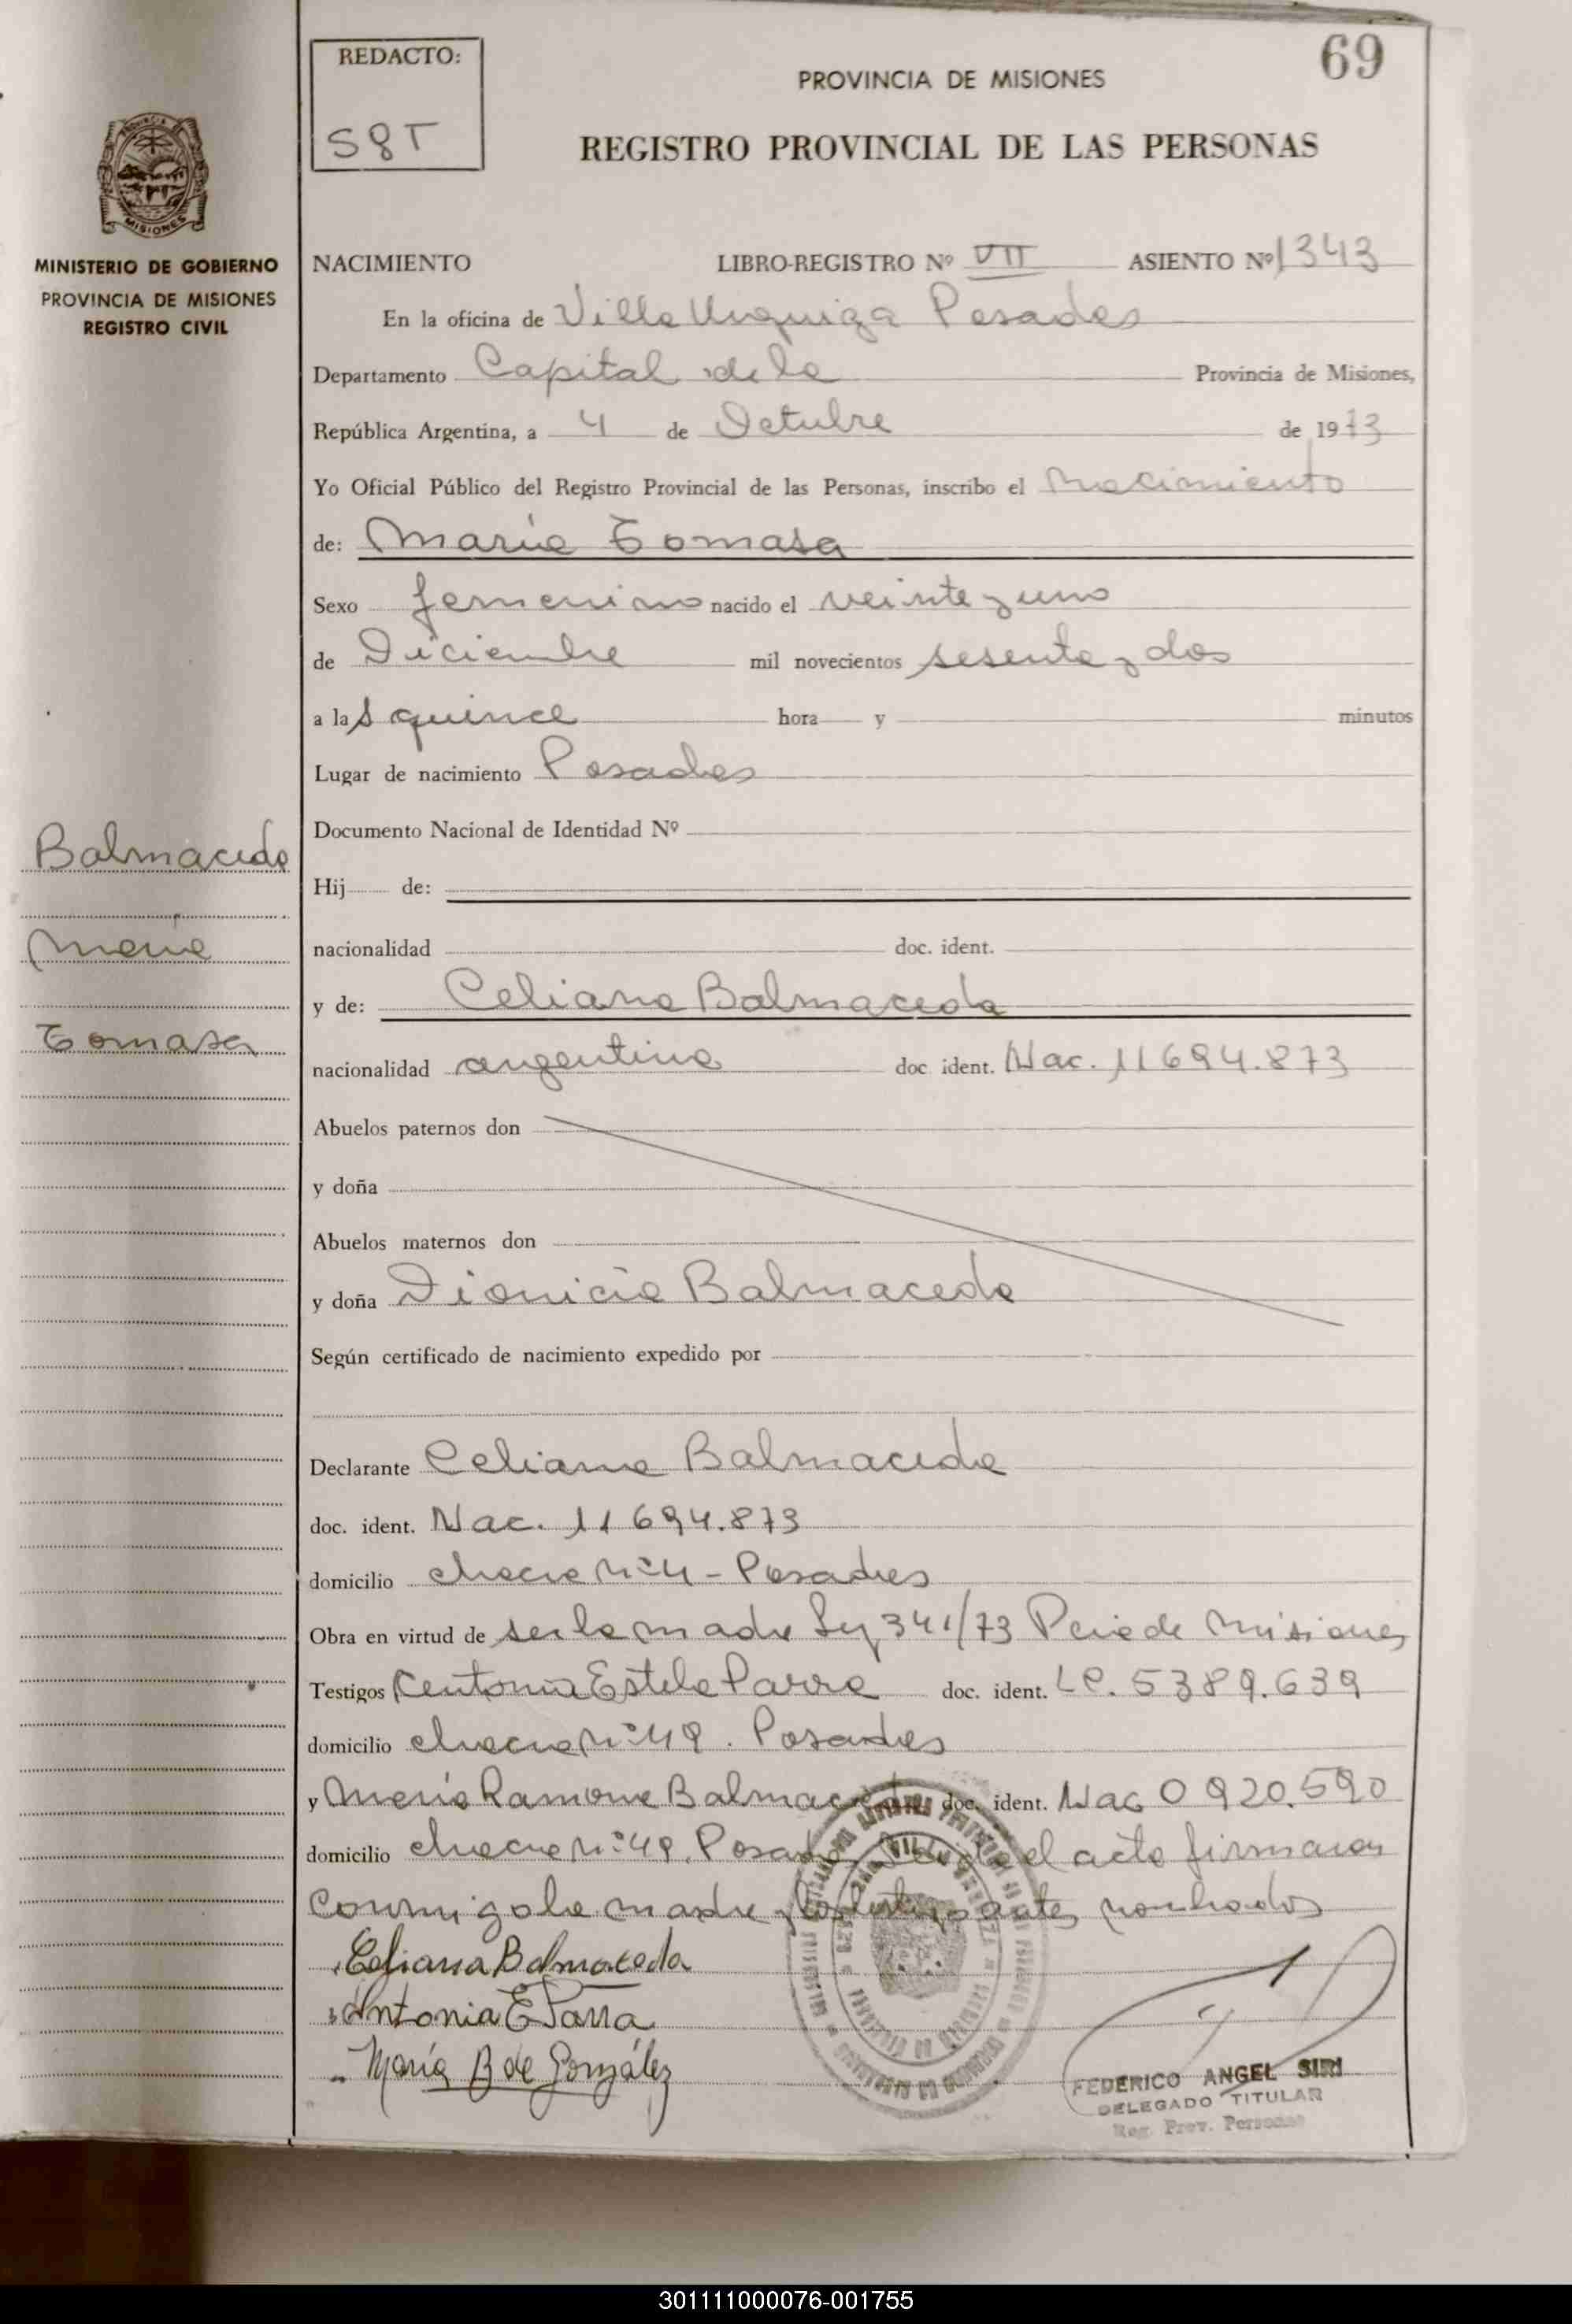 REDACTO:
S8T
69
PROVINCIA DE MISIONES
REGISTRO PROVINCIAL DE LAS PERSONAS
MISIONES
MINISTERIO DE GOBIERNO
PROVINCIA DE MISIONES
REGISTRO CIVIL
NACIMIENTO LIBRO-REGISTRO Nº VII ASIENTO Nº 1343
En la oficina de Villa Urquiza Posadas
Departamento Capital de la Provincia de Misiones,
República Argentina, a 4 de Octubre de 1973
Yo Oficial Público del Registro Provincial de las Personas, inscribo el Nacimiento
de: María Tomasa
Sexo femenino nacido el veinte y uno
de Diciembre mil novecientos sesenta y dos
a las quince hora y minutos
Lugar de nacimiento Posadas
Documento Nacional de Identidad Nº
Balmaceda
María
Tomasa
Hij de:
nacionalidad doc. ident.
y de: Celiana Balmaceda
nacionalidad argentina doc ident. Nac. 11694.873
Abuelos paternos don
y doña
Abuelos maternos don
y doña Dionicia Balmaceda
Según certificado de nacimiento expedido por
Declarante Celiana Balmaceda
doc. ident. Nac. 11694.873
domicilio chacra Nº 4 - Posadas
Obra en virtud de ser la madre Ley 341/73 Pcia de Misiones
Testigos Antonia Estela Parra doc. ident. LC. 5389.639
domicilio chacra Nº 49. Posadas
y María Ramona Balmaceda doc. ident. Nac 0920.590
domicilio chacra Nº 49. Posadas el acta firmaron
conmigo la madre y los testigos antes nombrados
Celiana Balmaceda
Antonia E Parra
María B de González
FEDERICO ANGEL SIRI
DELEGADO TITULAR
Reg. Prov. Personas
301111000076-001755